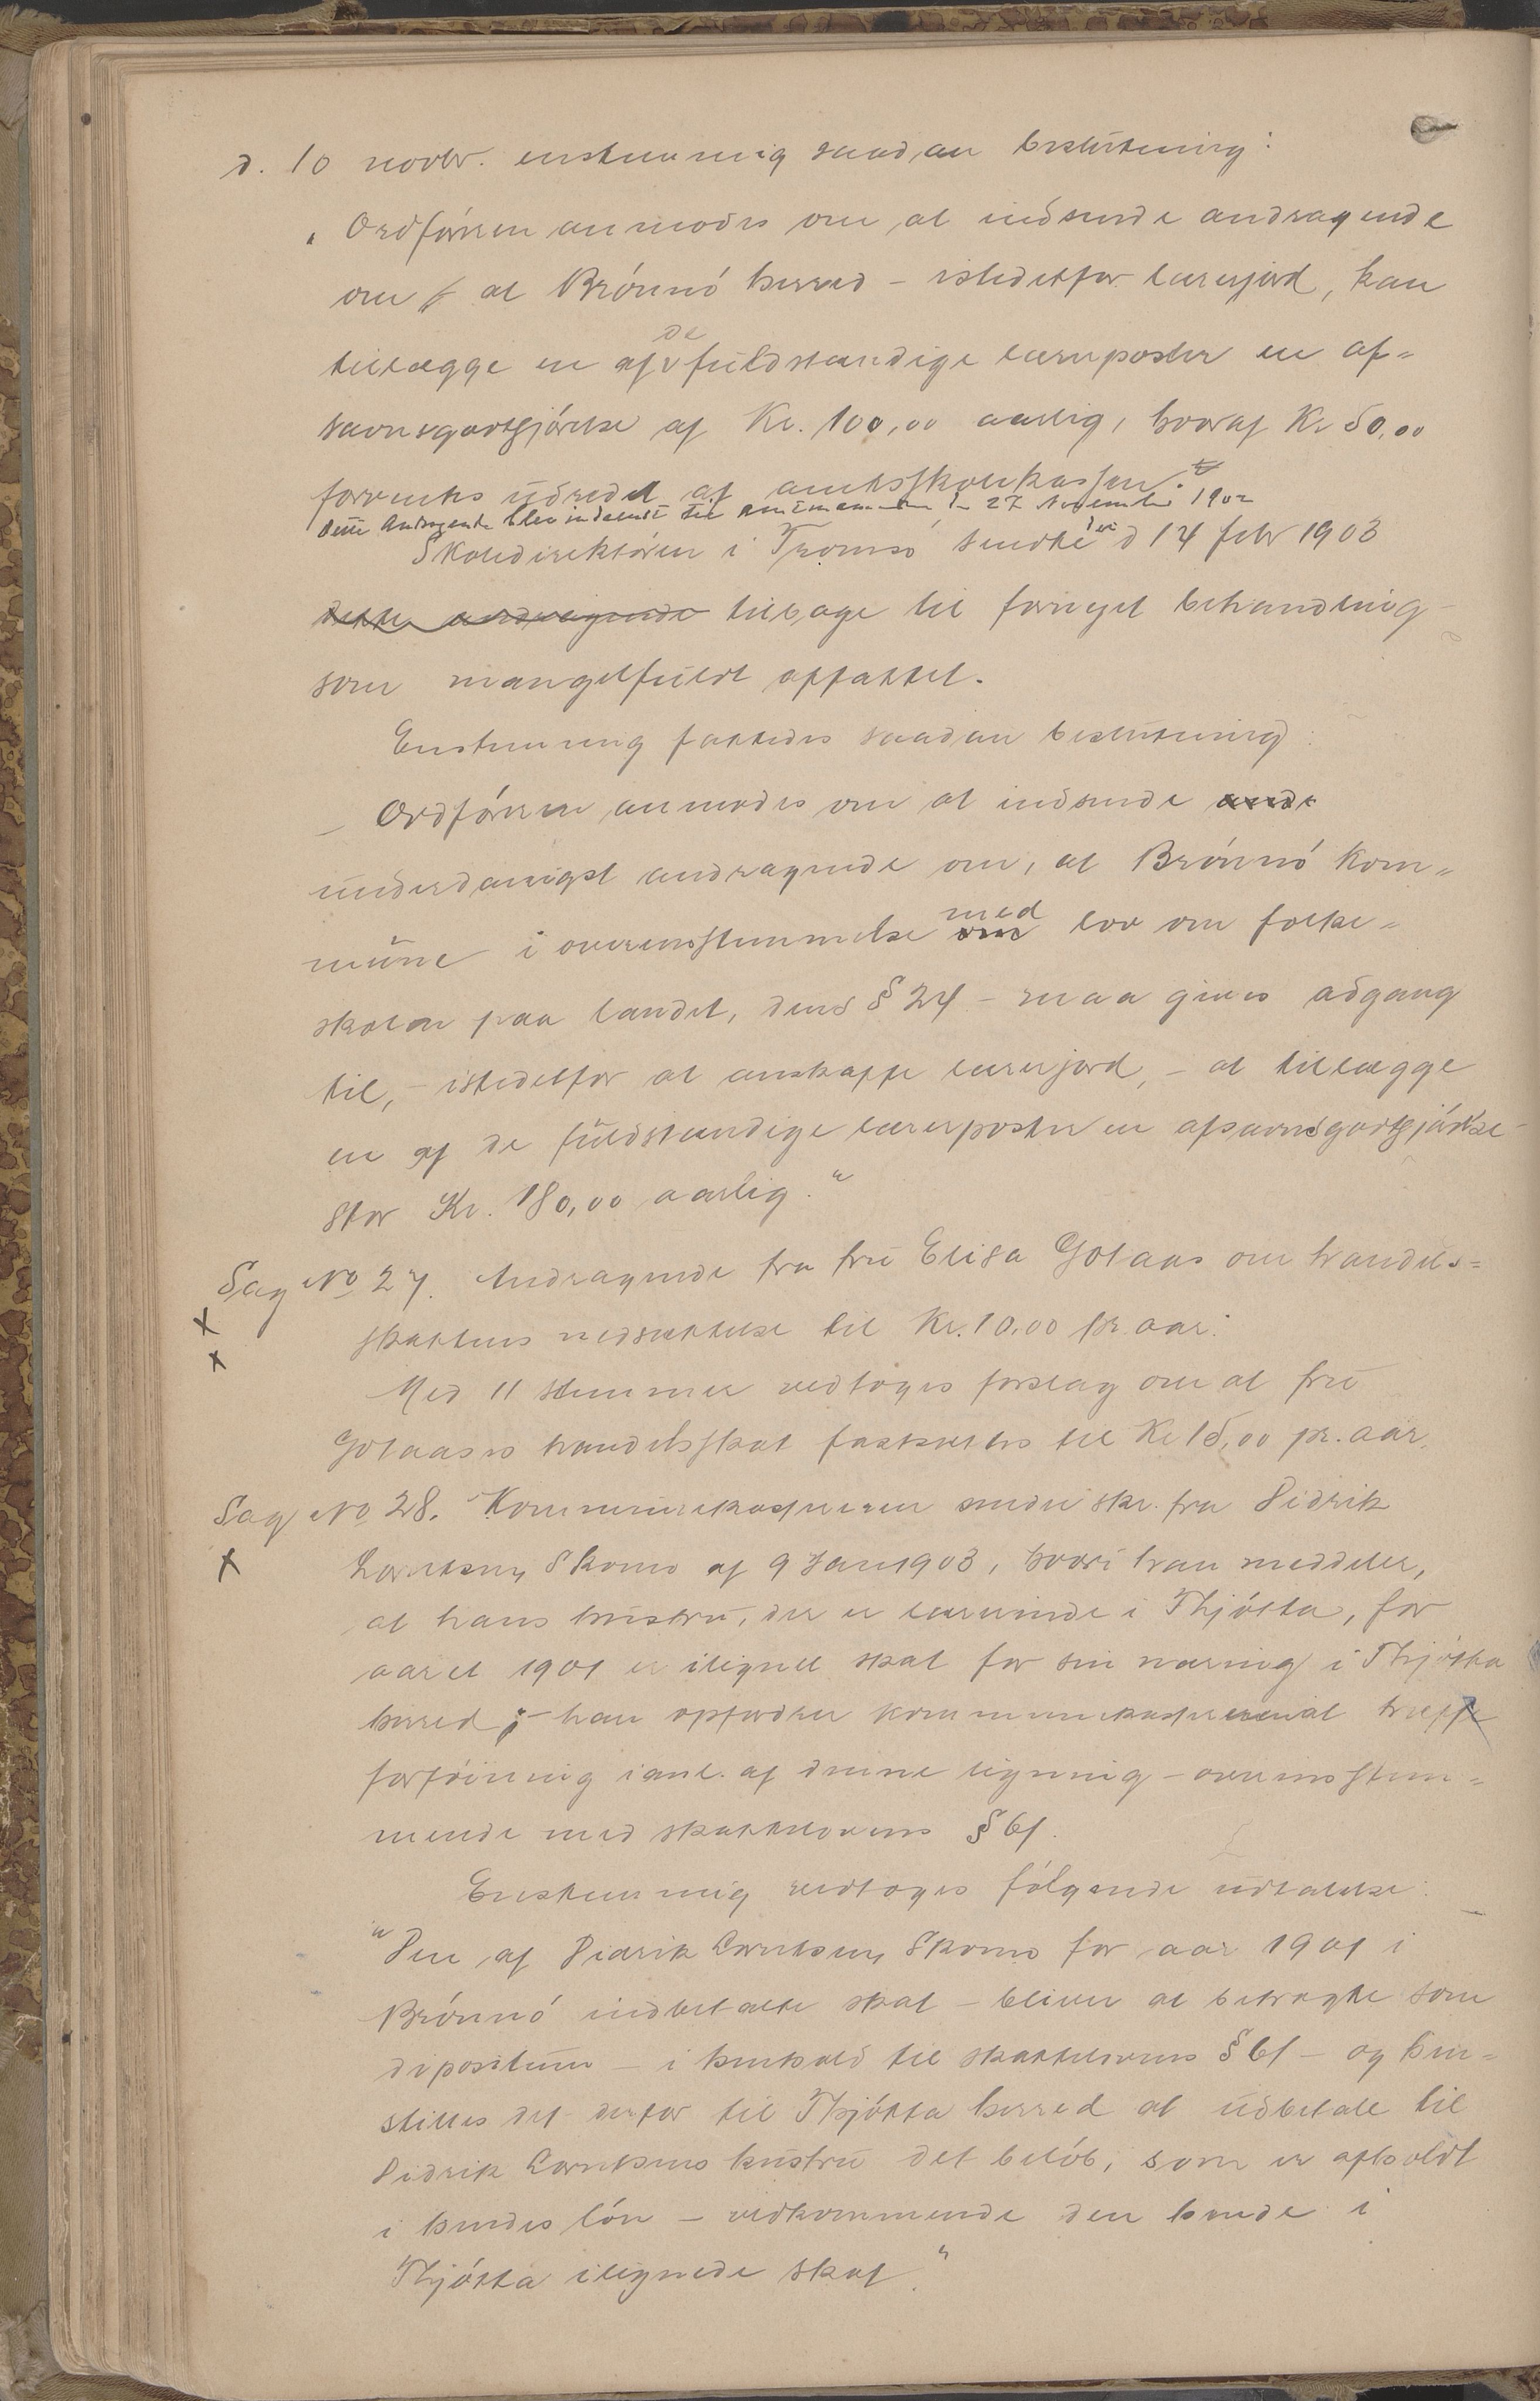 d. 10 novbr. enstemmig saadan beslutning:
„Ordføreren anmodes om at indsende andragende
om at Brønnø herred – istedetfor lærerjord, kan
tillægge en af de fuldstændige lærerposter en af-
savnsgodtgjørelse af Kr. 100,00 aarlig, hvoraf Kr 50,00
forventes udredet af amtsskolekassen."
Dette Andragende blev indsendt til Amtmanden den 27 November 1902
Skoledirektøren i Tromsø sendte det d 14 febr 1903
dette andragende tilbage til fornyet behandling
som mangelfuldt affattet.
Enstemmig fattedes saadan beslutning:
Ordføreren anmodes om at indsende andr
underdanigst andragende om, at Brønnø kom-
mune i overensstemmelse om med lov om folke-
skolen paa landet, dens § 24 – maa gives adgang
til, – istedetfor at anskaffe lærerjord, – at tillægge
en af de fuldstændige lærerposter en afsavnsgodtgjørelse
stor Kr. 180,00 aarlig."
Sag No 27. Andragende fra fru Elisa Gotaas om handels-
skattens nedsættelse til Kr. 10.00 pr. aar:
Med 11 stemmer vedtoges forslag om at fru
Gotaases handelsskat fastsættes til Kr 15,00 pr. aar.
Sag No 28. Kommunekassereren sender skr. fra Didrik
Lorentsen, Skomo af 9 Jan 1903, hvori han meddeler,
at hans hustru, der er lærerinde i Thjøtta, for
aaret 1901 er ilignet skat for sin næring i Thjøtta
herred; – han opfordrer kommunekassereren at træffe
forføining i anl. af denne ligning – overensstem-
mende med skattelovens § 61.
Enstemmig vedtoges følgende udtalelse:
"Den af Didrik Lorentsen, Skomo for aar 1901 i
Brønnø indbetalte skat – bliver at betragte som
depositum – i henhold til skattelovens § 61 – og hen-
stilles det derfor til Thjøtta herred at udbetale til
Didrik Lorentsens hustru det beløb, som er afholdt
i hendes løn – vedkommende den hende i
Thjøtta ilignede skat."